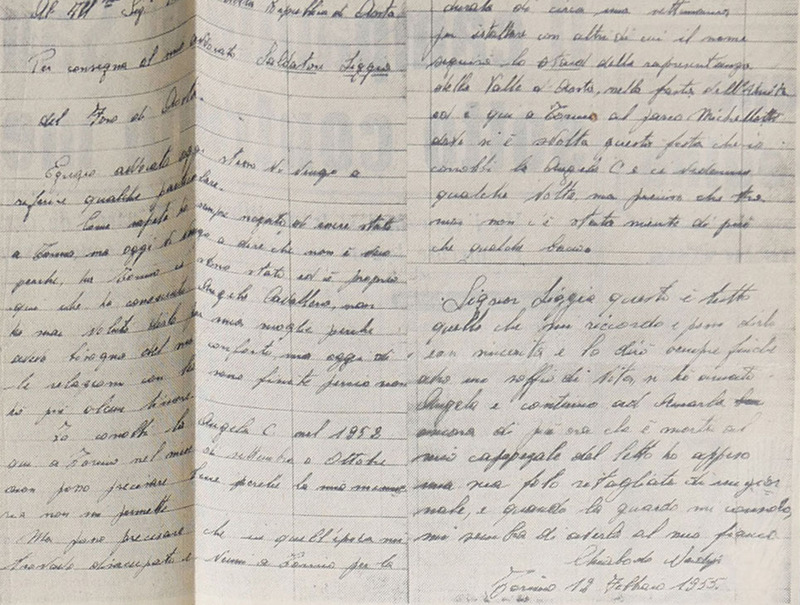 Per consegna al mio avvocato Salvatore Liggio
del Foro di Aosta.
Egregio avvocato oggi stesso Vi vengo a
riferire qualche particolare.
Come sapete ho sempre negato di essere stato
a Torino ma oggi Vi vengo a dire che non è vero
perché, ha Torino ci sono stato ed è proprio
qui che ho conosciuto Angela Cavallero, non
ho mai voluto dirlo per mia moglie perché
avevo bisogno del suo conforto, ma oggi di
le relazioni con lei sono finite perciò non
ho più alcun timore.
Io conobbi la Angela C nel 1952
qui a Torino nel mese di settembre o Ottobre
non posso precisare bene perché la mia memo
ria non mi permette
Ma posso precisare che in quell'epoca mi
trovavo disoccupato e venni a Torino per la
durata di circa una settimana
per istallare con altri di cui il nome
seguirà lo stand della rappresentanza
della Valle d'Aosta, nella festa dell'Unità
ed è qui a Torino al parco Michellotti
dove si è svolta questa festa che io
conobbi la Angela C e ci vedemmo
qualche volta, ma preciso che
mai non c'è stato niente di più
che qualche bacio.
Signor Liggio questo è tutto
quello che mi ricordo e posso dirlo
con sincerità e lo dirò sempre finché
avrò un soffio di vita, si ho amato
Angela e continuo ad amarla
ancora di più ora che è morta al
mio capezzale del letto ho appeso
una sua foto ritagliata di un gior
nale, e quando la guardo mi consolo,
mi sembra di averla al mio fianco
Torino 12 Febbraio 1955.